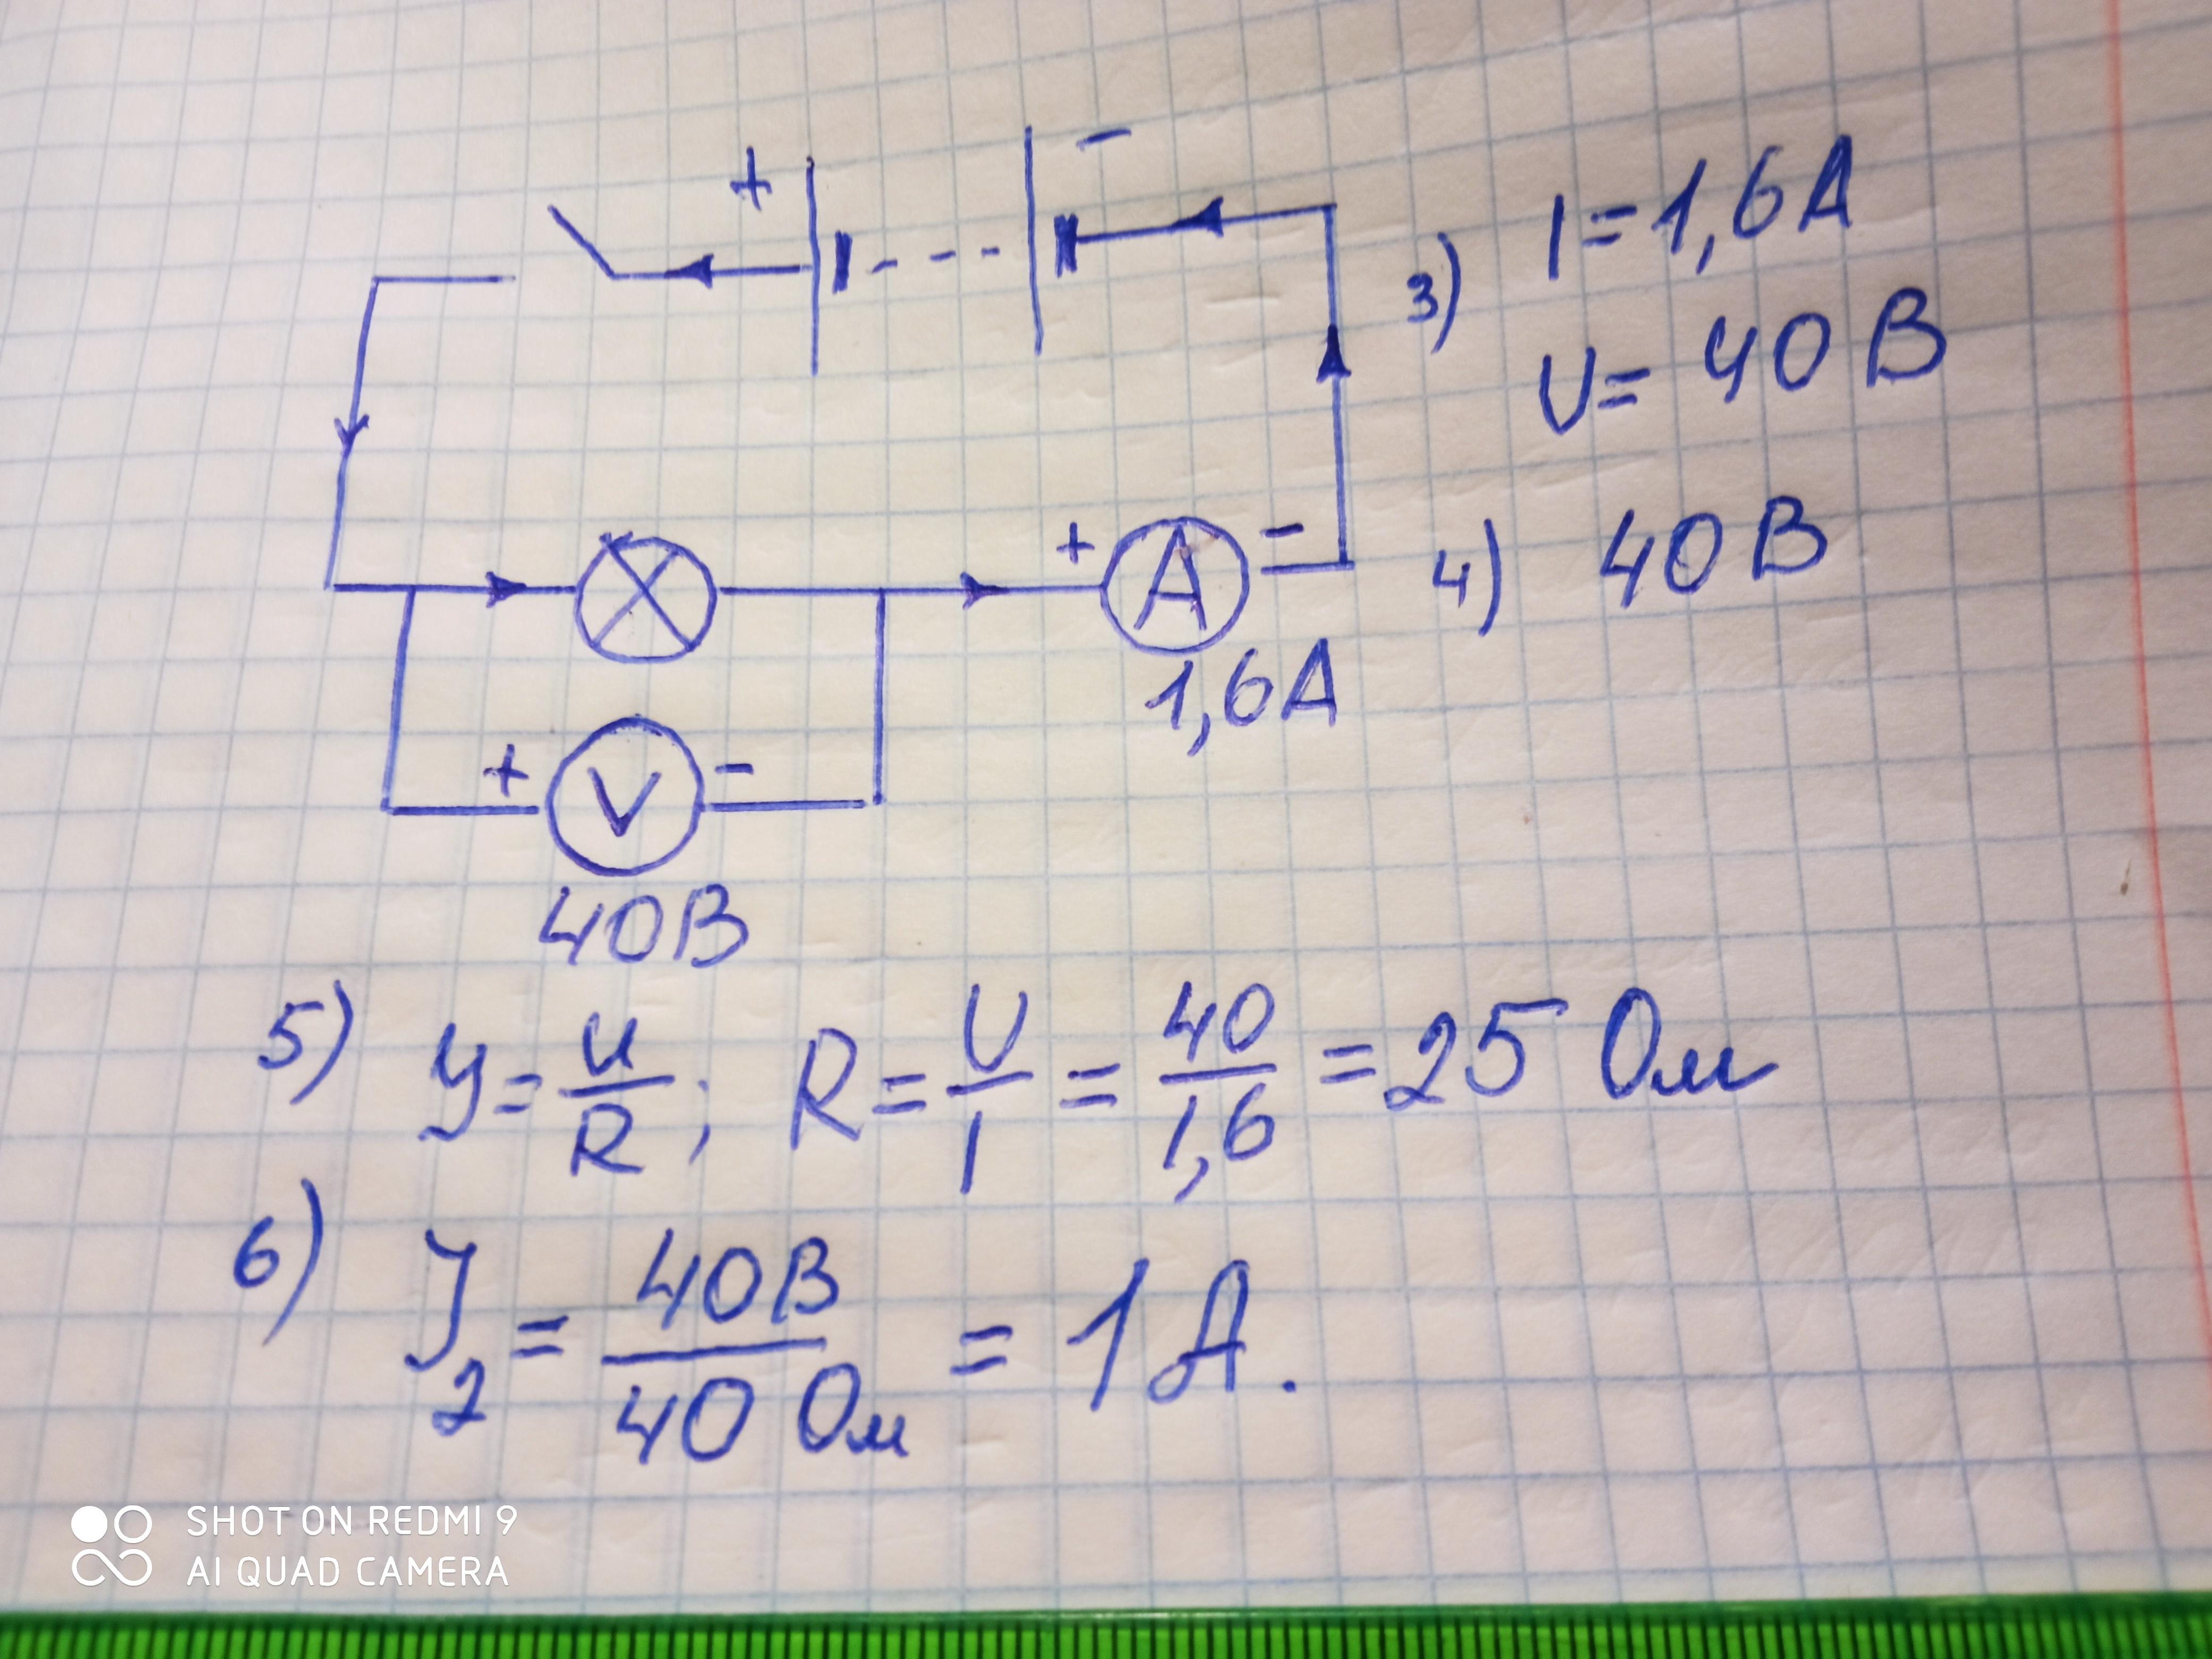 + -
3) I = 1,6 A
U = 40 В
+ A -
1,6 A
4) 40 В
+ V -
40 В
5) У = U/R ; R = U/I = 40/1,6 = 25 Ом
6) У₂ = 40 В/40 Ом = 1 А.
SHOT ON REDMI 9
AI QUAD CAMERA